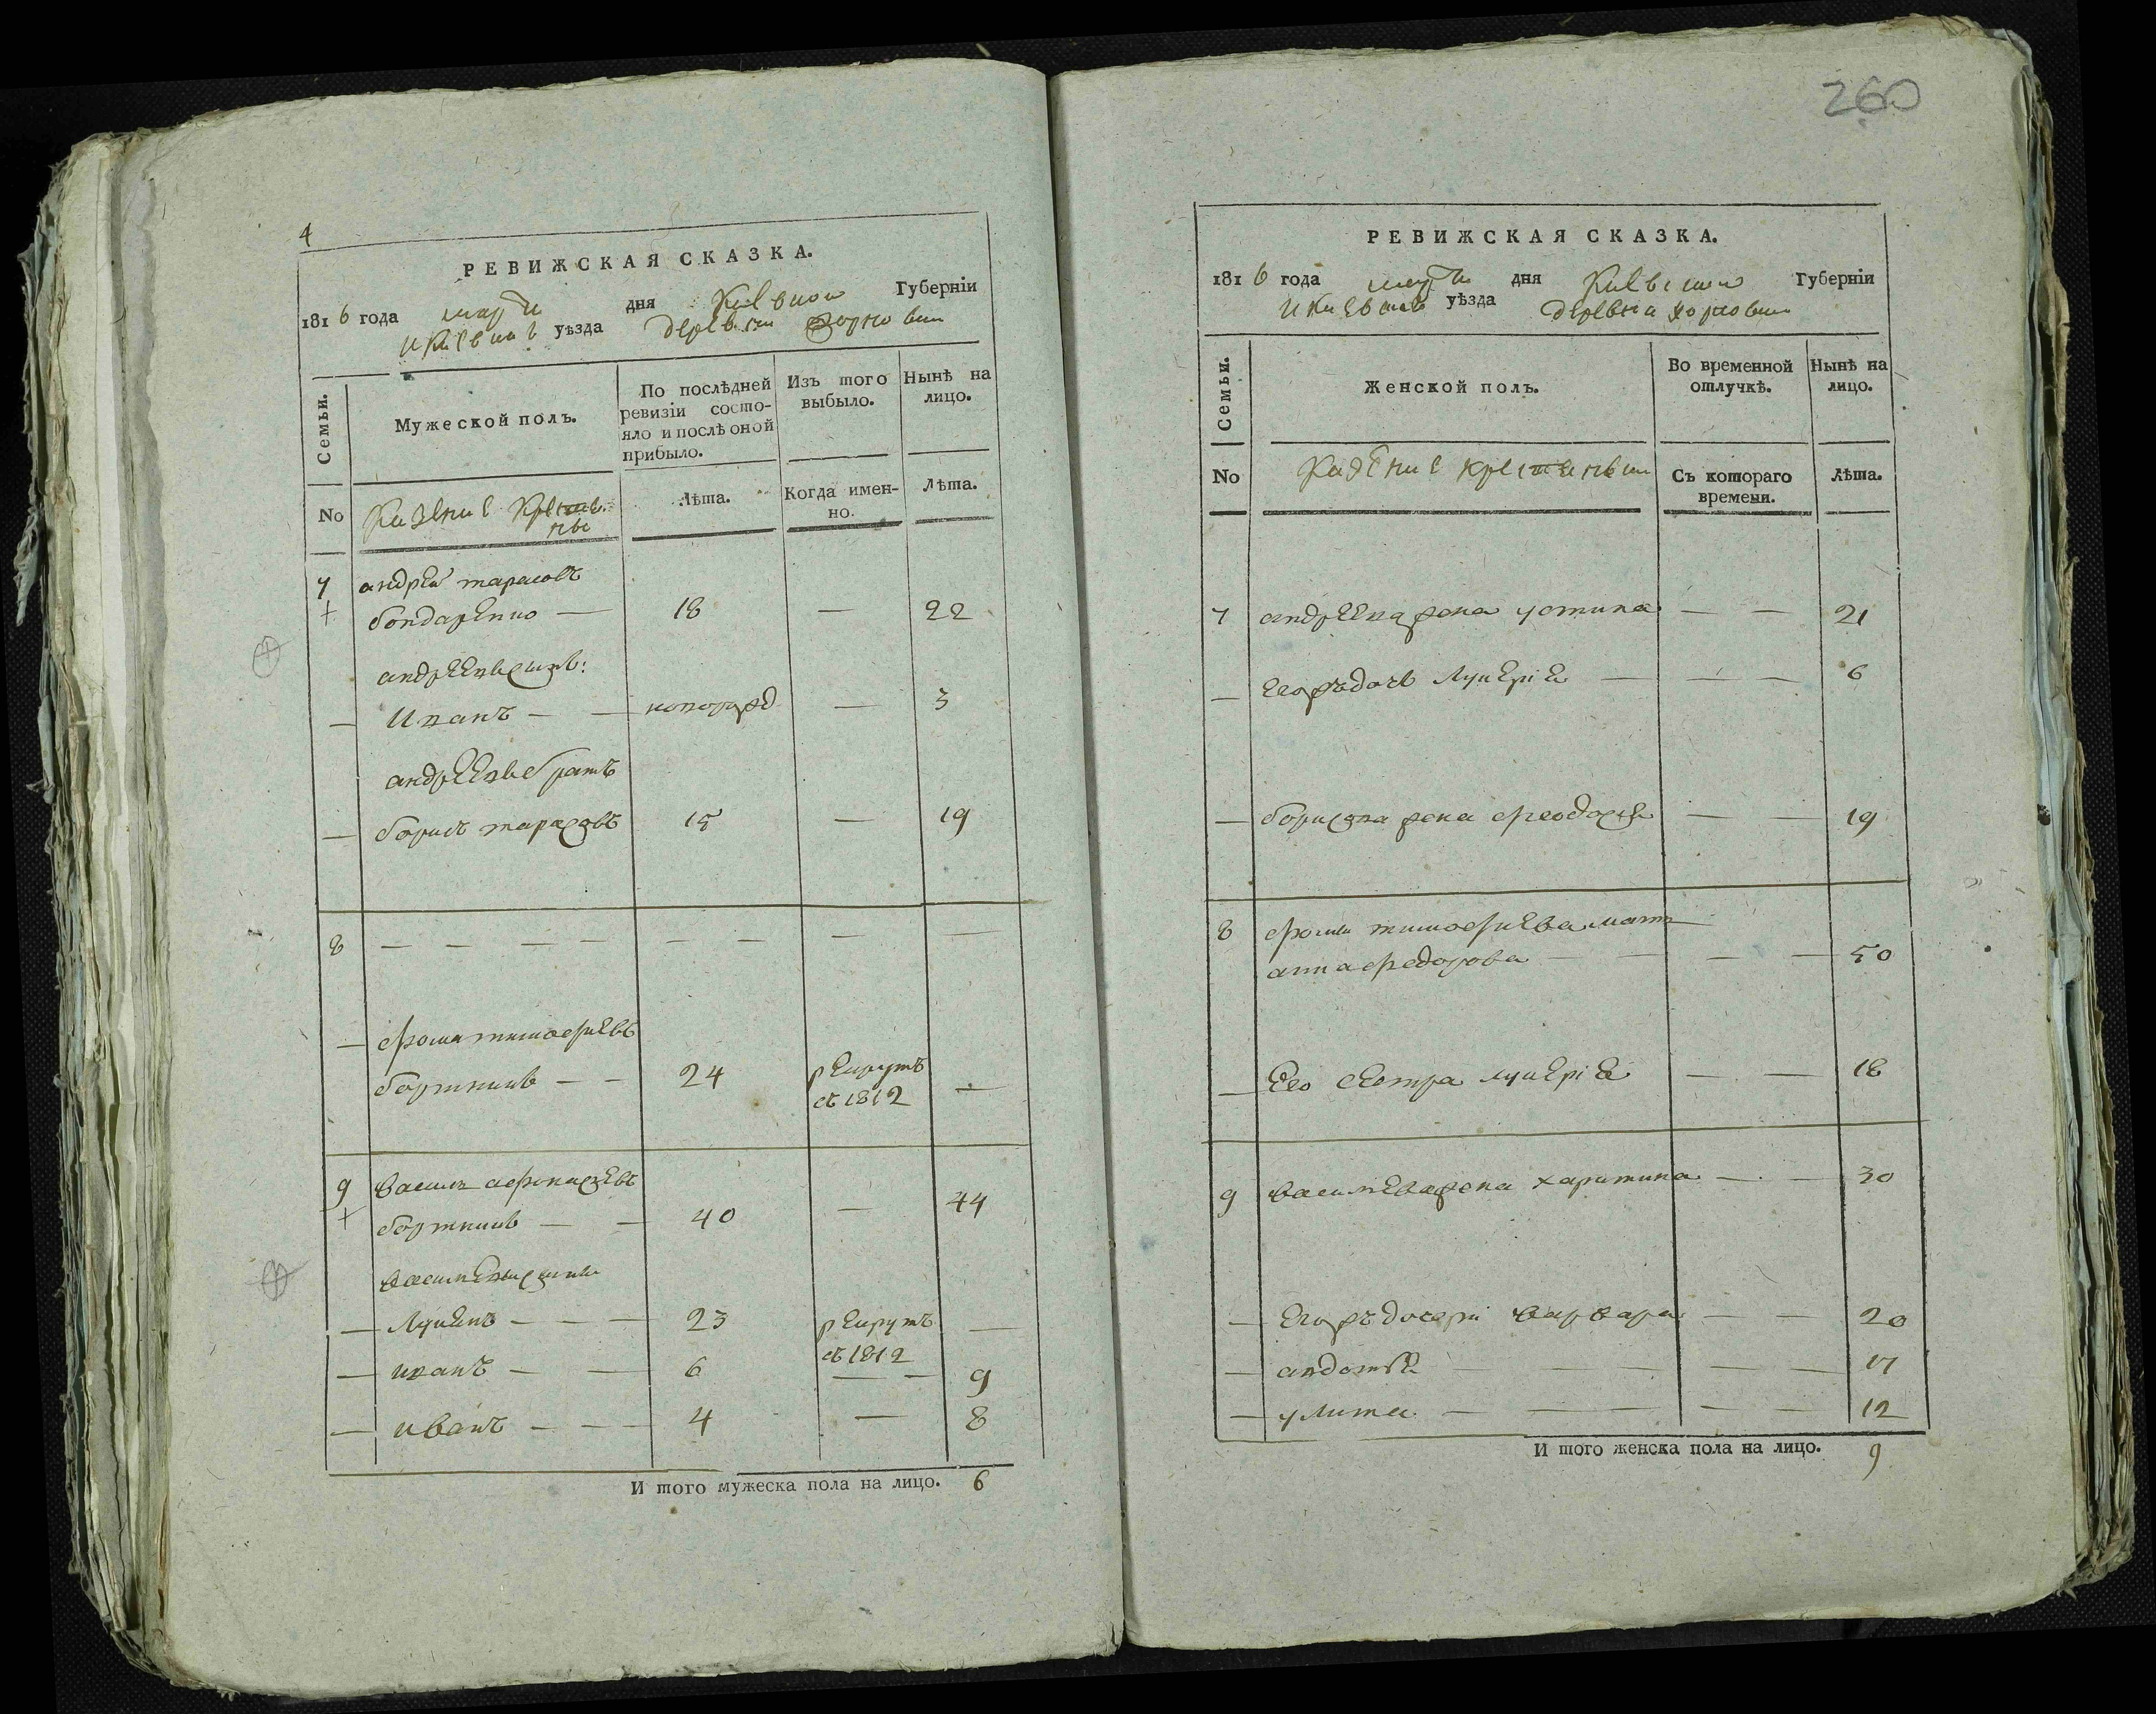 4
РЕВИЖСКАЯ СКАЗКА.
1816 года марта дня Киевской Губерніи
и Киевскаго уѣзда деревни
Семьи.
Мужеской полъ.
По послѣдней ревизіи состо-
яло и послѣ оной
прибыло.
Изъ того
выбыло.
Нынѣ на
лицо.
No
Казенние Крестья
ны
Лѣта.
Когда имен-
но.
Лѣта.
7 андрей тарасовъ
бондаренко — 18 — 22
андреевъ сынъ:
— Иванъ — — новорожд — 3
андреевъ братъ
— борисъ тарасовъ 15 — 19
8 — — — — — — — —
— фома тимофиевъ
бортникъ — — 24 рекрутъ —
въ 1812
9 василь афонасиевъ
бортникъ — — 40 — 44
василиевы сыны
— Лукянъ — — — 23 рекрутъ —
въ 1812
— иванъ — — 6 — — 9
— иванъ — — — 4 — 8
И того мужеска пола на лицо. 6
260
РЕВИЖСКАЯ СКАЗКА.
1816 года марта дня Киевской Губерніи
и Киевскаго уѣзда деревни
Семьи.
Женской полъ.
Во временной
отлучкѣ.
Нынѣ на
лицо.
No
Казение крестьяньки
Съ котораго
времени.
Лѣта.
7 андреева жена устина — — 21
— Егожъ дочь лукерiя — — — 6
— борисова жена феодосия — — 19
8 фоми тимофиева мать
анна федорова — — — — 50
— Его сестра лукерiя — — 18
9 василиева жена харитина — — 30
— Егожъ дочери варвара — — 20
— авдотия — — — — 17
— улита — — — — 12
И того женска пола на лицо. 9